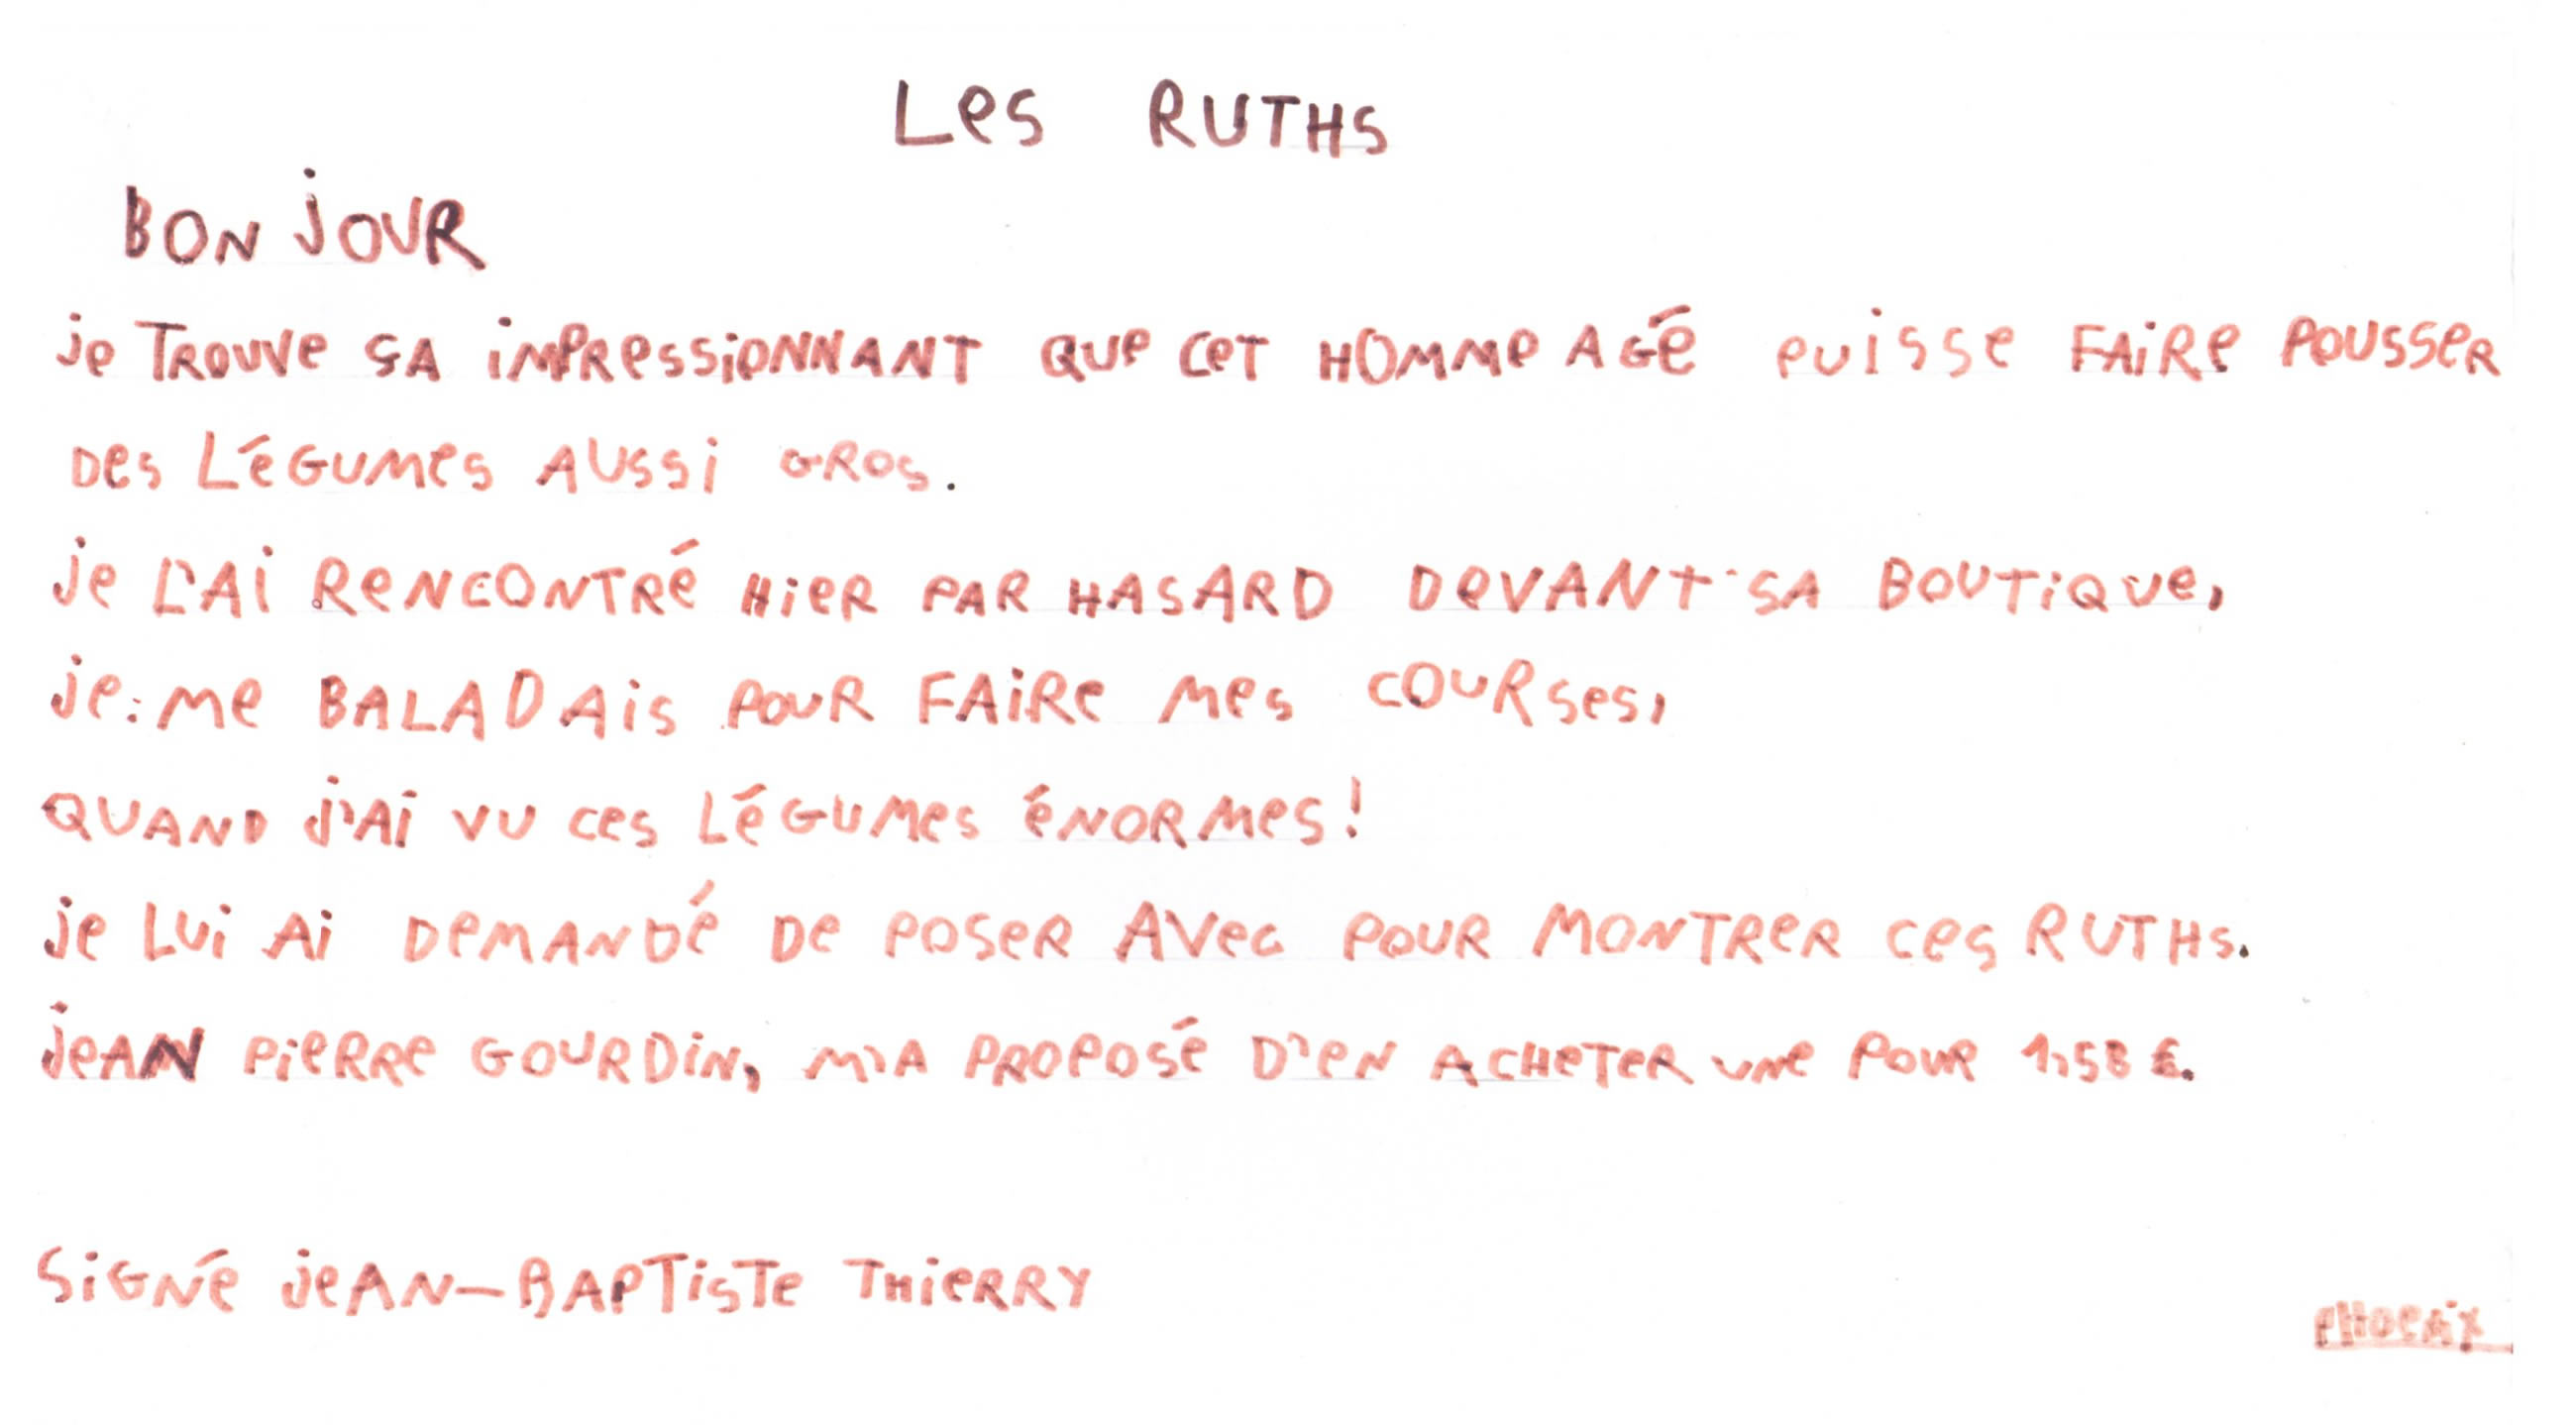 Les RUTHS
BONjOUR
je TROUVE ÇA iMPRessiONNANT QUE CeT HOMMe AGÉ PUiSSe FAiRe POUSSER
Des LÉGUMes AUSSi GROS.
je L'Ai ReNCONTRÉ HieR PAR HASARD DeVANT SA BOUTiQUe,
je me BALADAiS POUR FAiRe Mes COURses,
QUAND j'Ai VU ces LÉGUMes ÉNORMes!
je LUi Ai DeMANDÉ De POSeR AVec POUR MONTReR ces RUTHS.
jeAN PieRRe GOURDiN, M'A PROPOSÉ D'eN ACHeTeR UNe POUR 1,58 €.
SiGNÉ jeAN-BAPTiSTe THieRRY